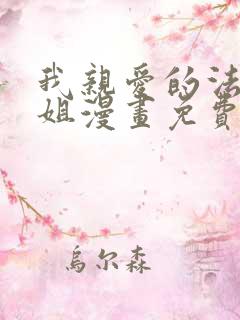 我親愛的法
姐漫畫免費
烏尔森